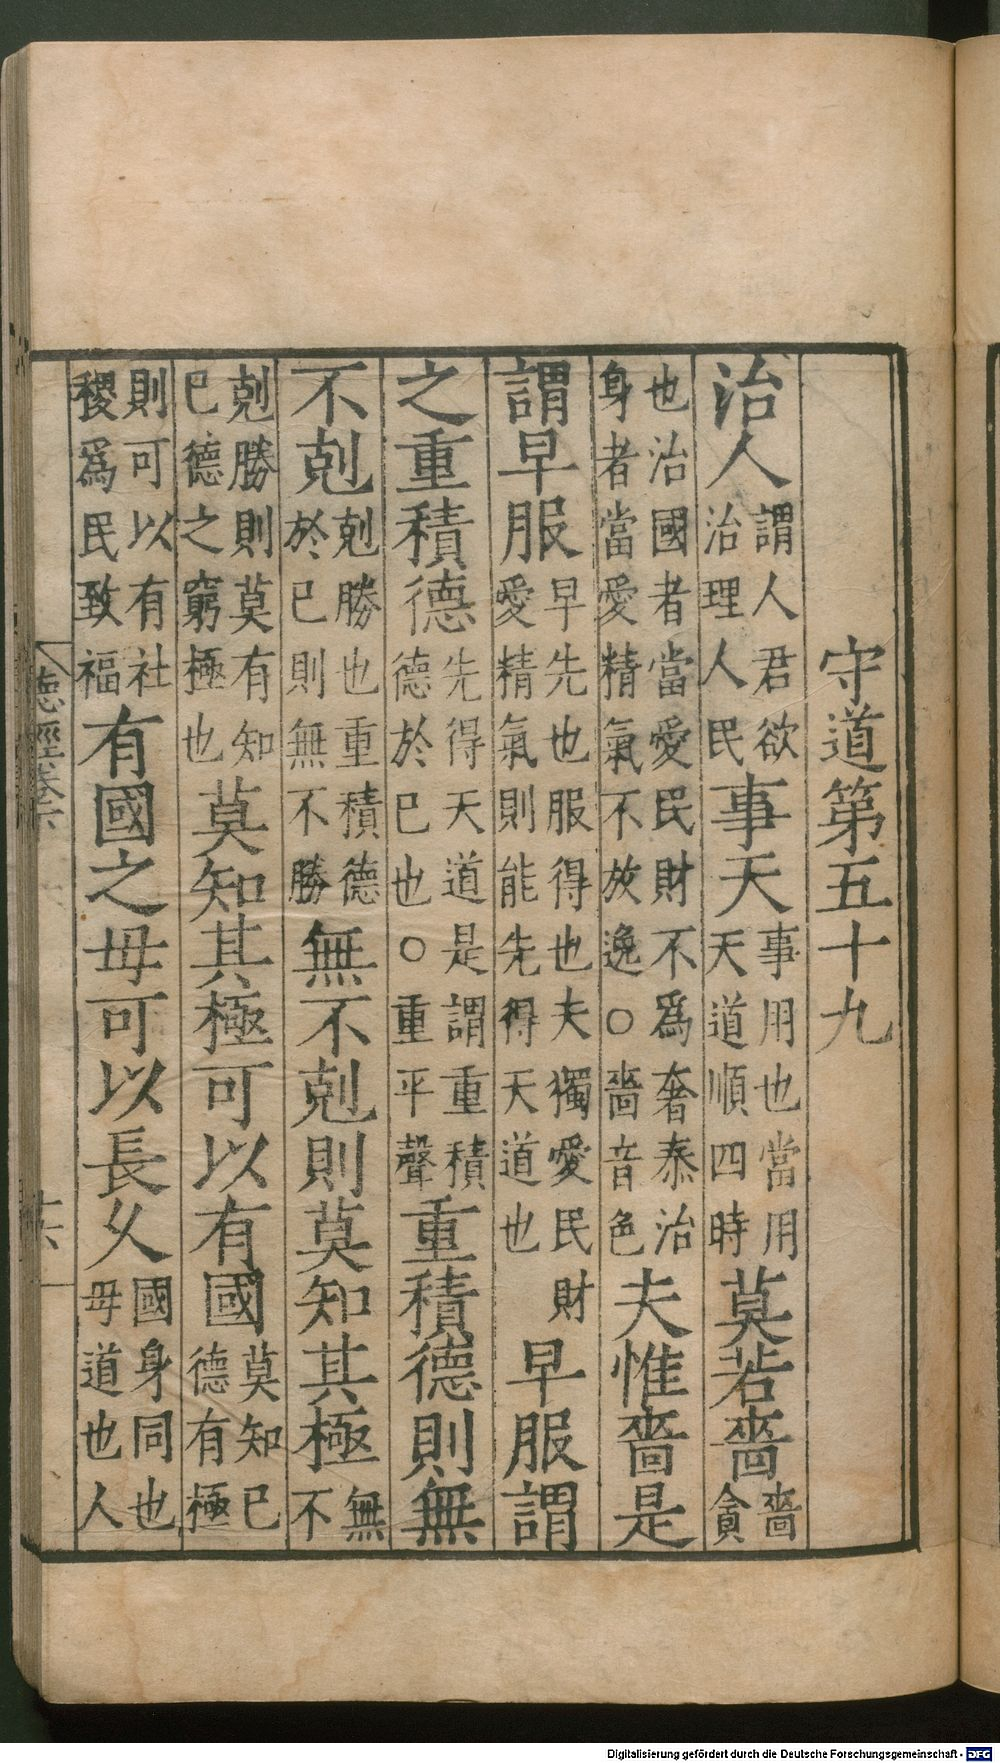 守道第五十九
治人謂人君欲治理人民事天事用也當用天道順四時莫若嗇嗇貪
也治國者當愛民財不爲奢泰治身者當愛精氣不放逸○嗇音色夫惟嗇是
謂早服早先也服得也夫獨愛民財愛精氣則能先得天道也早服謂
之重積德先得天道是謂重積德於已也○重平聲重積德則無
不剋剋勝也重積德於已則無不勝無不剋則莫知其極無不
剋勝則莫有知已德之窮極也莫知其極可以有國莫知已德有極
則可以有社稷爲民致福有國之毋可以長乆國身同也毋道也人
德經卷六
十六
Digitalisierung gefördert durch die Deutsche Forschungsgemeinschaft - DFG